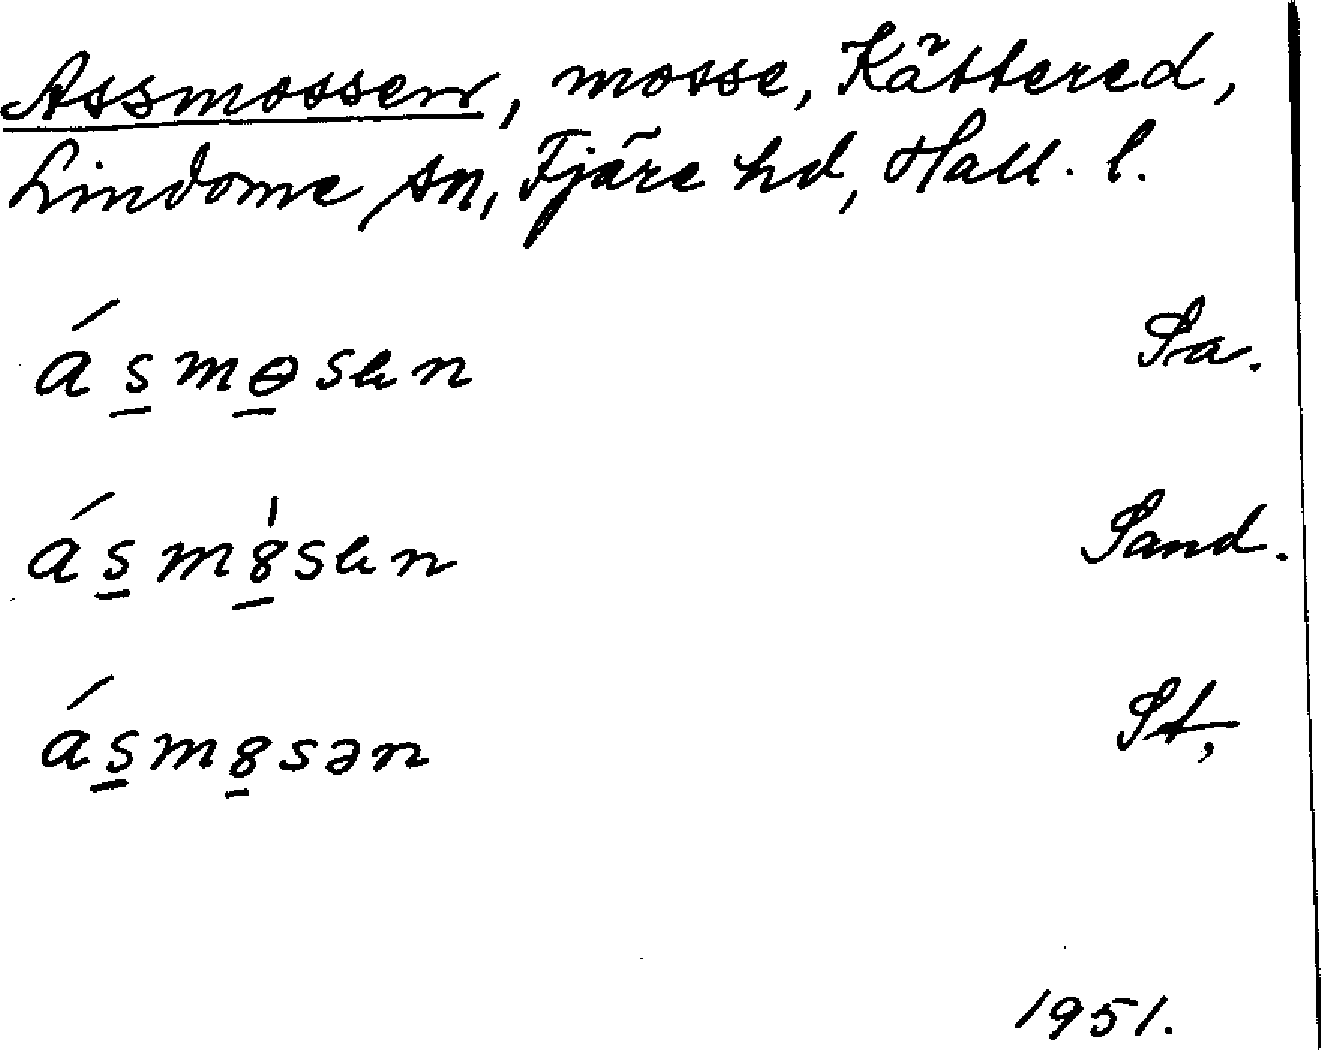 Assmossen, mosse, Kättered,
Lindome sn, Fjäre hd, Hall. l.
ás̲mɵ̲sen Sa.
ás̲m8̲̍sen Sand.
ás̲m8̲sən St,
1951.